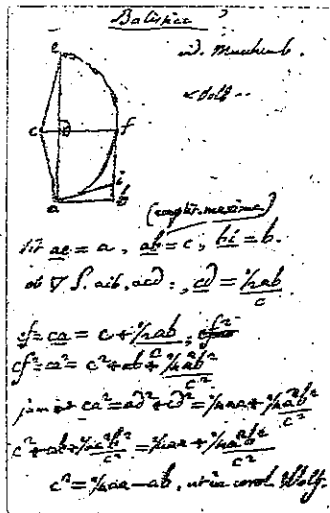 Balistica
vid. Muschenb.
Wolf
e
c
d
f
i
a
b
(amplit. maxima)
sit ae = a, ab = c, bi = b.
ob ∇ S. aib, acd :, cd = ½ab/c
cf = ca = c + ½ab/c, cf²
cf² = ca² = c² + ab + ¼a²b²/c²
jam et ca² = ad² + cd² = ¼aa + ¼a²b²/c²
c² + ab + ¼a²b²/c² = ¼aa + ¼a²b²/c²
c² = ¼aa − ab, Wolf.